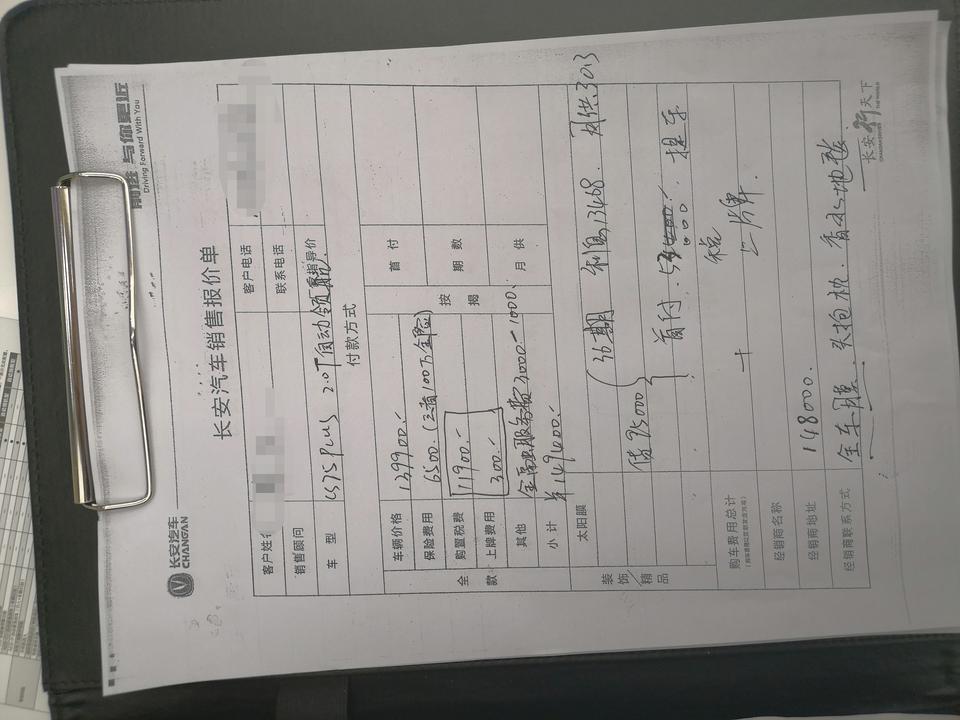 长安汽车
CHANGAN
前进 与你更近
Driving Forward With You
长安汽车销售报价单
客户姓名
客户电话
销售顾问
联系电话
车 型
CS75 PLUS 2.0T自动领航
指导价
付款方式
全款
车辆价格
139900.-
按揭
首 付
保险费用
6500.(三者100万全保)
期 数
购置税费
11900.-
上牌费用
300.-
月 供
其他
金融服务费3000-1000.
小 计
149400.-
太阳膜
装饰/精品
贷95000
36期 利息13468. 月供3013
首付. 提车
购车费用总计
+ 税
上牌.
经销商名称
经销商地址
148000.
经销商联系方式
全车膜. 头抱枕. 香水 地毯.
长安行天下